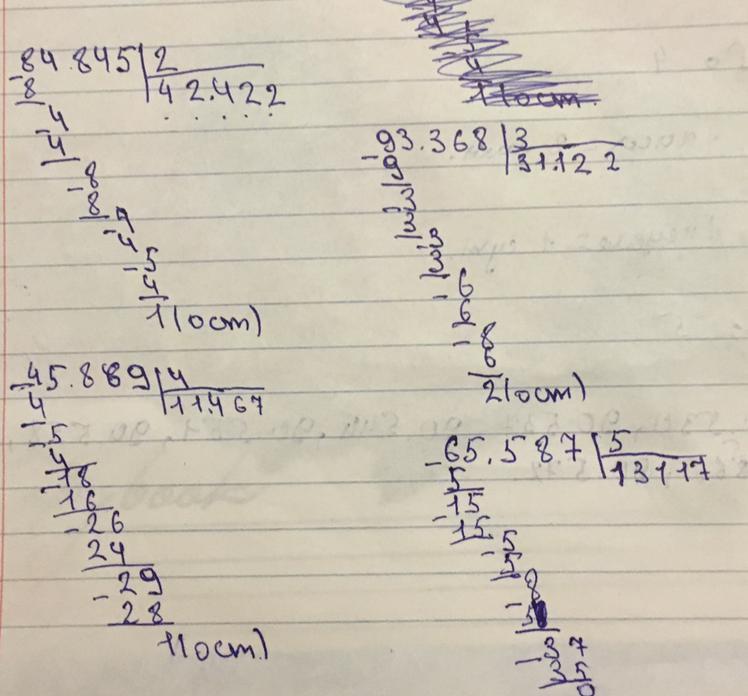 1(ост.
-84.845 | 2
8 | 42.422
-4
4
-8
8
-4
4
-5
4
1(ост)
-93.368 | 3
9 | 31.122
-3
3
-3
3
-6
6
-8
6
2(ост)
-45.869 | 4
4 | 11467
-5
4
-18
16
-26
24
-29
28
1(ост.)
-65.587 | 5
5 | 13117
-15
15
-5
5
-8
5
-37
35